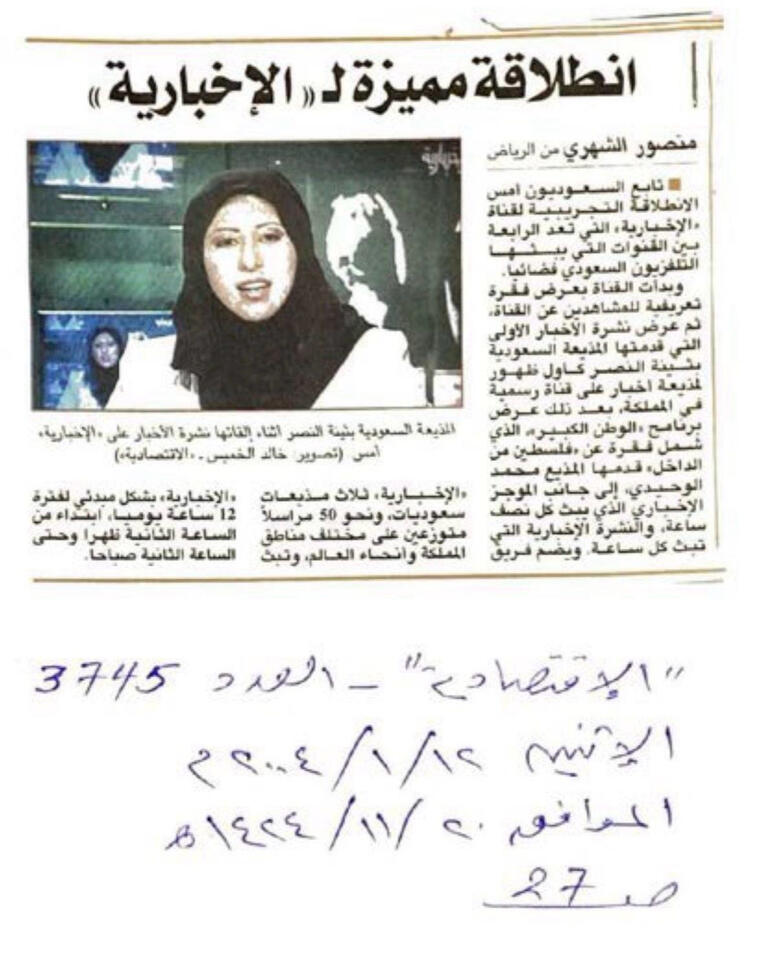 انطلاقة مميزة لـ «الإخبارية»
منصور الشهري من الرياض
■ تابع السعوديون أمس
الانطلاقة التجريبية لقناة
«الإخبارية» التي تعد الرابعة
بين القنوات التي يبثها
التلفزيون السعودي فضائيا.
وبدأت القناة بعرض فقرة
تعريفية للمشاهدين عن القناة،
ثم عرض نشرة الأخبار الأولى
التي قدمتها المذيعة السعودية
بثينة النصر كاول ظهور
لمذيعة اخبار على قناة رسمية
في المملكة، بعد ذلك عرض
برنامج «الوطن الكبير»، الذي
شمل فقرة عن «فلسطين من
الداخل» قدمها المذيع محمد
الوحيدي، إلى جانب الموجز
الإخباري الذي يبث كل نصف
ساعة، والنشرة الإخبارية التي
تبث كل ساعة. ويضم فريق
«الإخبارية» ثلاث مذيعات
سعوديات، ونحو 50 مراسلاً
متوزعين على مختلف مناطق
المملكة وأنحاء العالم، وتبث
«الإخبارية» بشكل مبدئي لفترة
12 ساعة يوميا، ابتداء من
الساعة الثانية ظهرا وحتى
الساعة الثانية صباحا.
المذيعة السعودية بثينة النصر اثناء إلقائها نشرة الأخبار على «الإخبارية»
أمس (تصوير: خالد الخميس ـ «الاقتصادية»)
"الإقتصادية" - العدد 3745
الإثنين ١٢/١/٢٠٠٤م
الموافق ٢٠/١١/١٤٢٤هـ
صـ 27